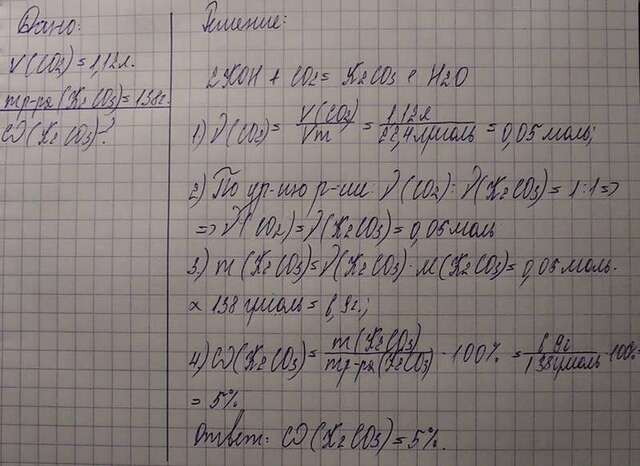 Дано:
V(CO2)=1,12л.
mр-ра(K2CO3)=138г.
ω(K2CO3)?
Решение:
2KOH + CO2 = K2CO3 + H2O
1) ν(CO2) = V(CO2)/Vm = 1,12л/22,4л/моль = 0,05 моль;
2) По ур-ию р-ии: ν(CO2):ν(K2CO3)=1:1=>
=> ν(CO2)=ν(K2CO3)=0,05 моль
3) m(K2CO3)=ν(K2CO3)·M(K2CO3)=0,05 моль.
× 138 г/моль = 6,9г.;
4) ω(K2CO3)= m(K2CO3)/mр-ра(K2CO3) · 100% = 6,9г/138г/моль · 100%
= 5%
Ответ: ω(K2CO3)=5%.